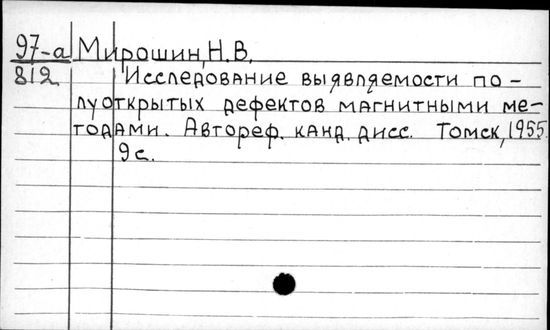 97-а Мирошин, Н.В.
812 Исследование выявляемости по-
луоткрытых дефектов магнитными ме-
тодами. Автореф. канд. дисс. Томск, 1955.
9с.